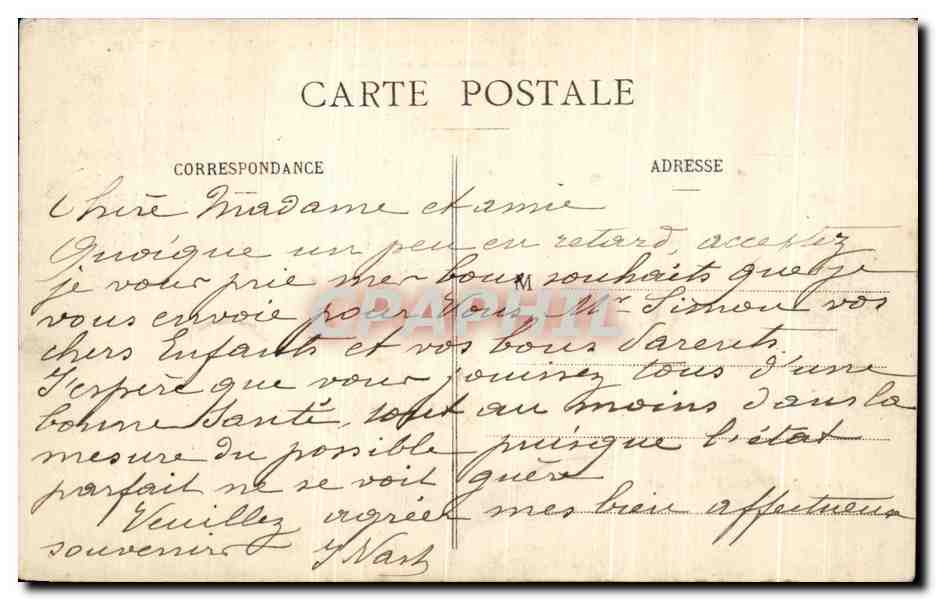 CARTE POSTALE
CORRESPONDANCE
ADRESSE
Chère Madame et amie
Quoique un peu en retard, acceptez
je vous prie mes bons souhaits que je
M
vous envoie pour Vous, Mr Simon vos
chers Enfants et vos bons Parents.
J'espère que vous jouissez tous d'une
bonne Santé, tout au moins dans la
mesure du possible puisque l'état
parfait ne se voit guère
Veuillez agréer mes bien affectueux
souvenirs
CPAPHIL